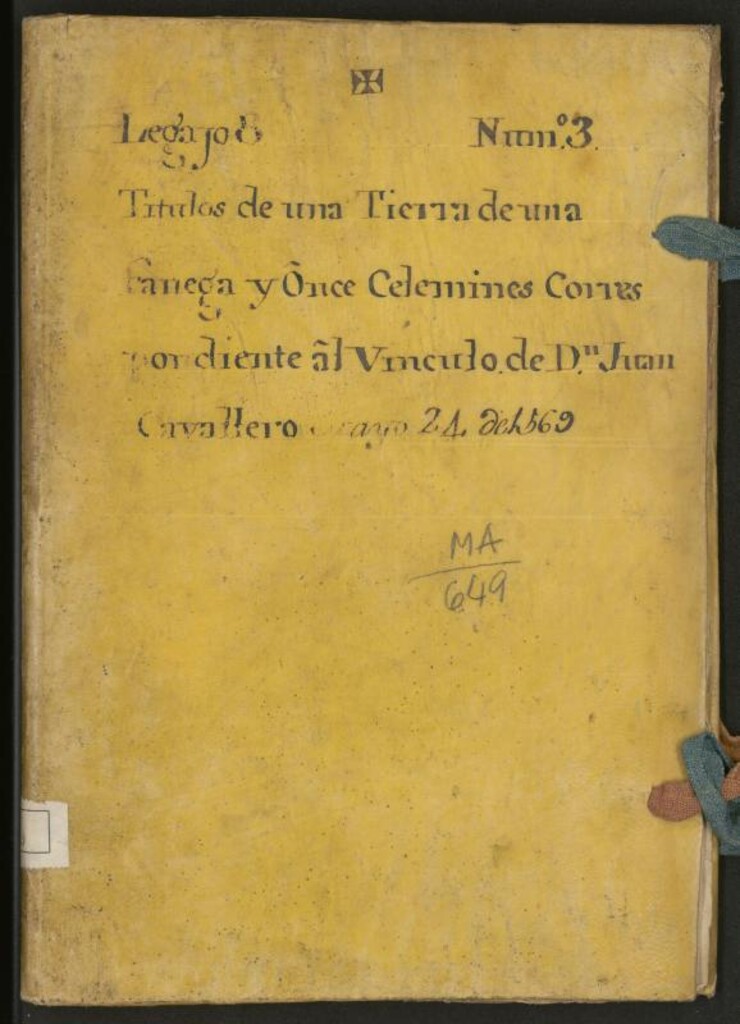 ✠
Legajo 8 Num.º 3.
Titulos de una Tierra de una
fanega y Ônce Celemines Corres
pondiente âl Vinculo de D.ⁿ Juan
Cavallero mayo 24. de 1569
MA
649